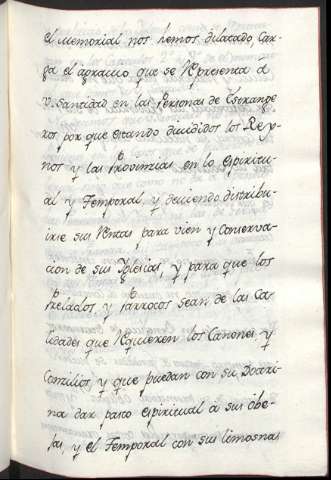 el memorial nos hemos dilatado, Car-
ga el agravio que se Representa á
V. Santidad en las Personas de Estrange
ros, por que estando dividídos los Rey-
nos y las Provincias en lo Espiritu-
al y Temporal, y deviendo distribu-
irse sus Rentas para vien y Conserva-
cion de sus Yglesias, y para que los
Prelados y Parrocos sean de las Ca-
lidades que Requieren los Canones, y
Conzilios, y que puedan con su Doctri-
na dar pasto espiritual a sus Obe-
jas, y el Temporal con sus limosnas